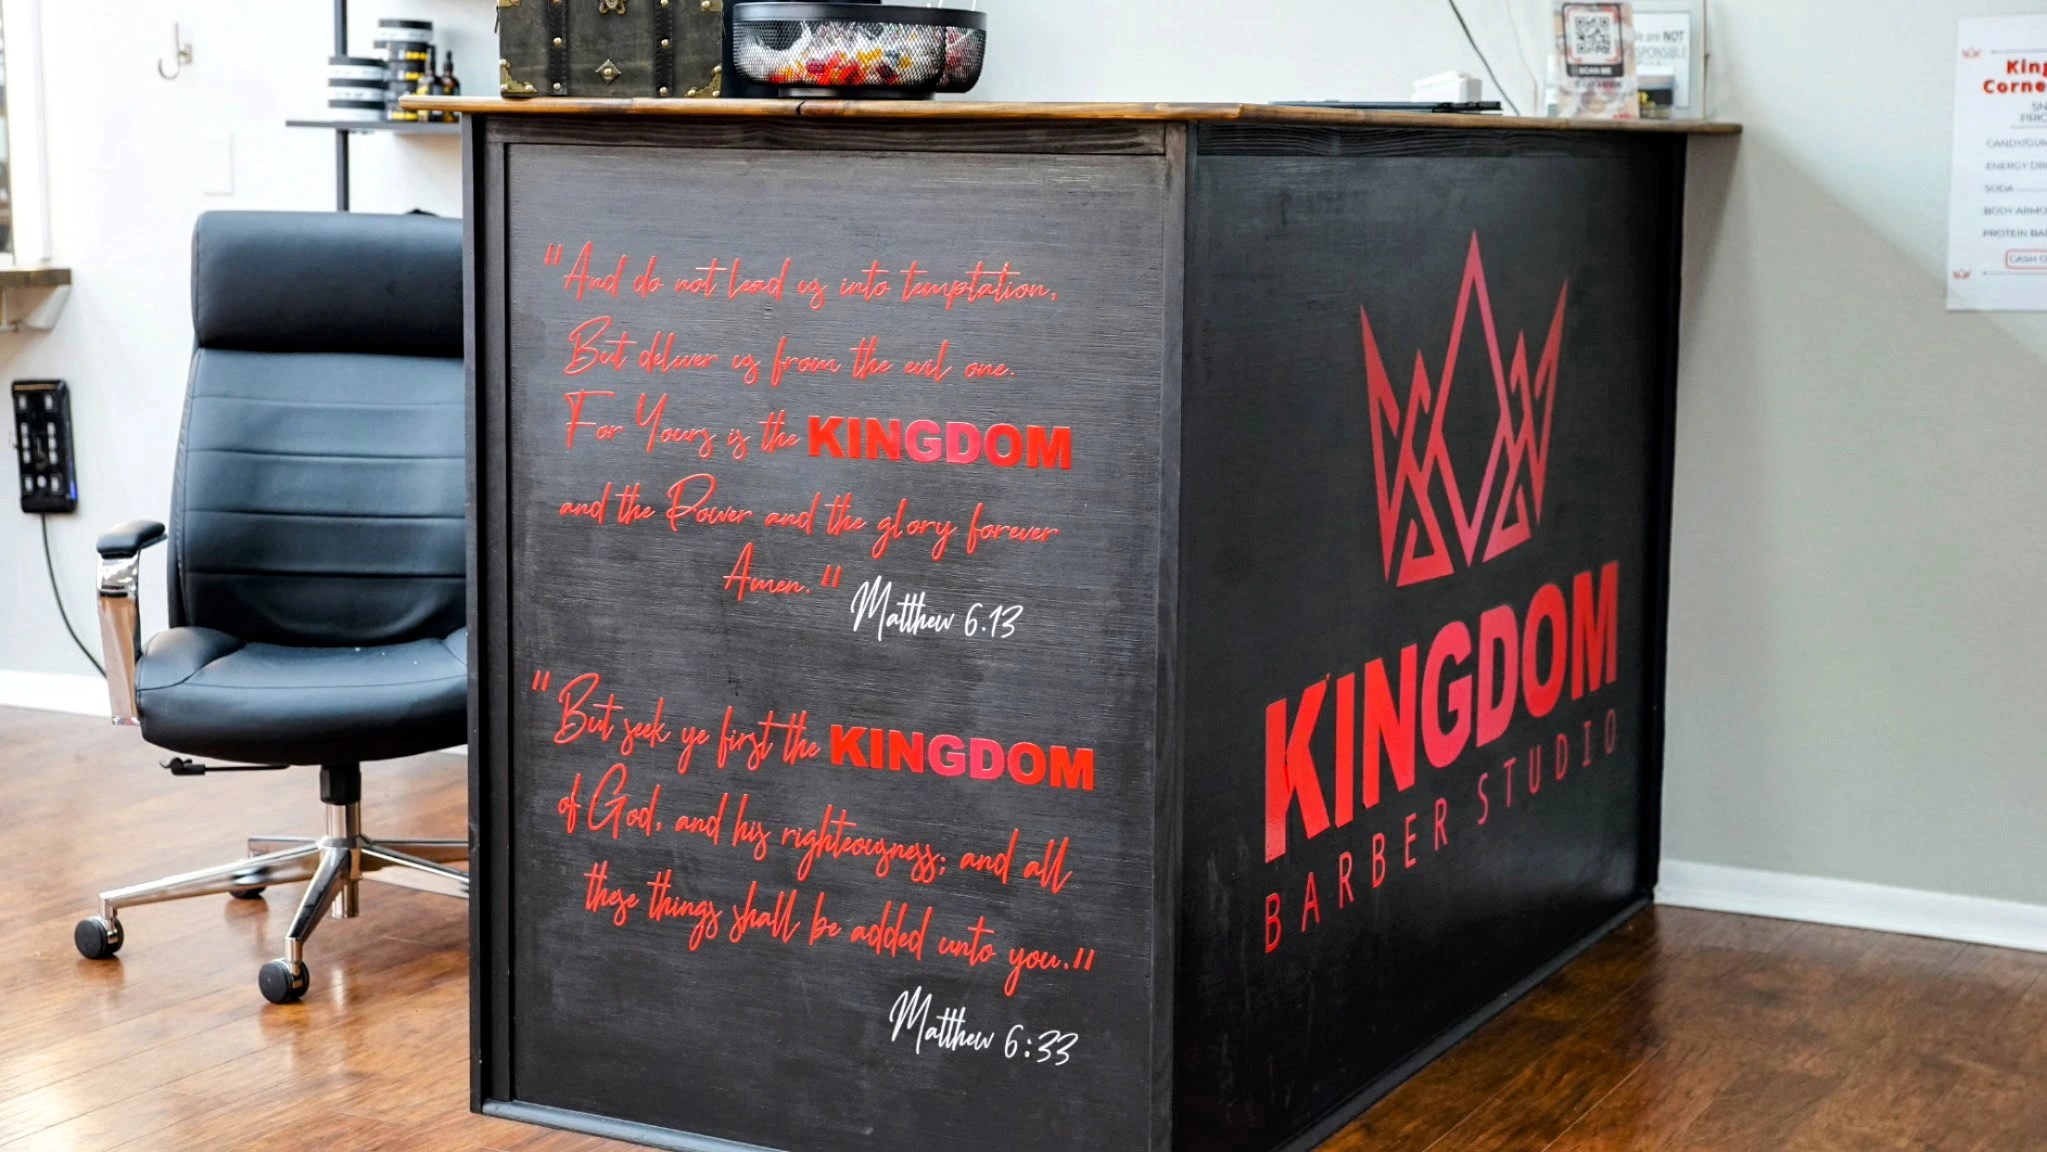 "And do not lead us into temptation,
But deliver us from the evil one.
For Yours is the KINGDOM
and the Power and the glory forever
Amen."
Matthew 6.13
"But seek ye first the KINGDOM
of God, and his righteousness; and all
these things shall be added unto you."
Matthew 6:33
KINGDOM
BARBER STUDIO
SCAN ME
are NOT
King
Corne
SN
PRIC
CANDY/GUM
ENERGY DRI
SODA
BODY ARMO
PROTEIN BAR
CASH O